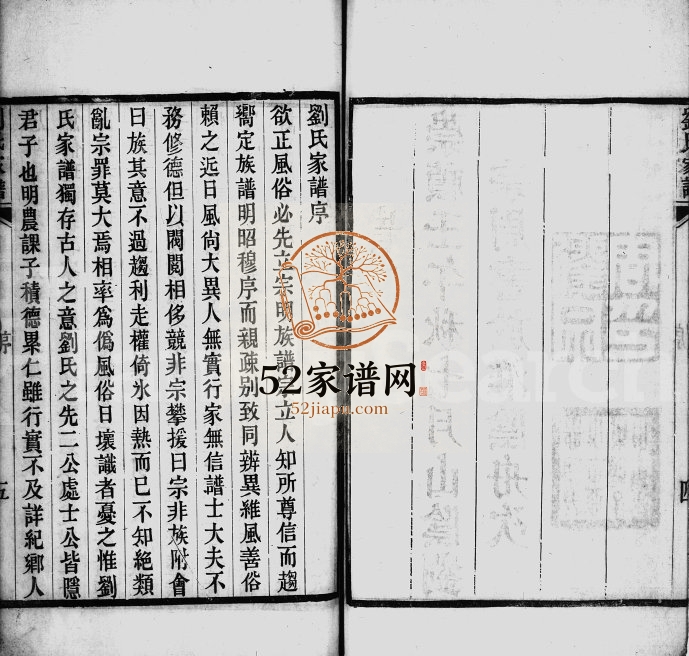 劉氏家譜序
欲正風俗必先立宗明族譜宗立人知所尊信而趨
嚮定族譜明昭穆序而親疎別致同辨異維風善俗
賴之近日風尙大異人無實行家無信譜士大夫不
務修德但以閥閱相侈競非宗攀援曰宗非族附會
曰族其意不過趨利走權倚氷因熱而已不知絶類
亂宗罪莫大焉相率爲僞風俗日壞識者憂之惟劉
氏家譜獨存古人之意劉氏之先二公處士公皆隱
君子也明農課子積德累仁雖行實不及詳紀鄉人
序
五
四
52家谱网
52jiapu.com